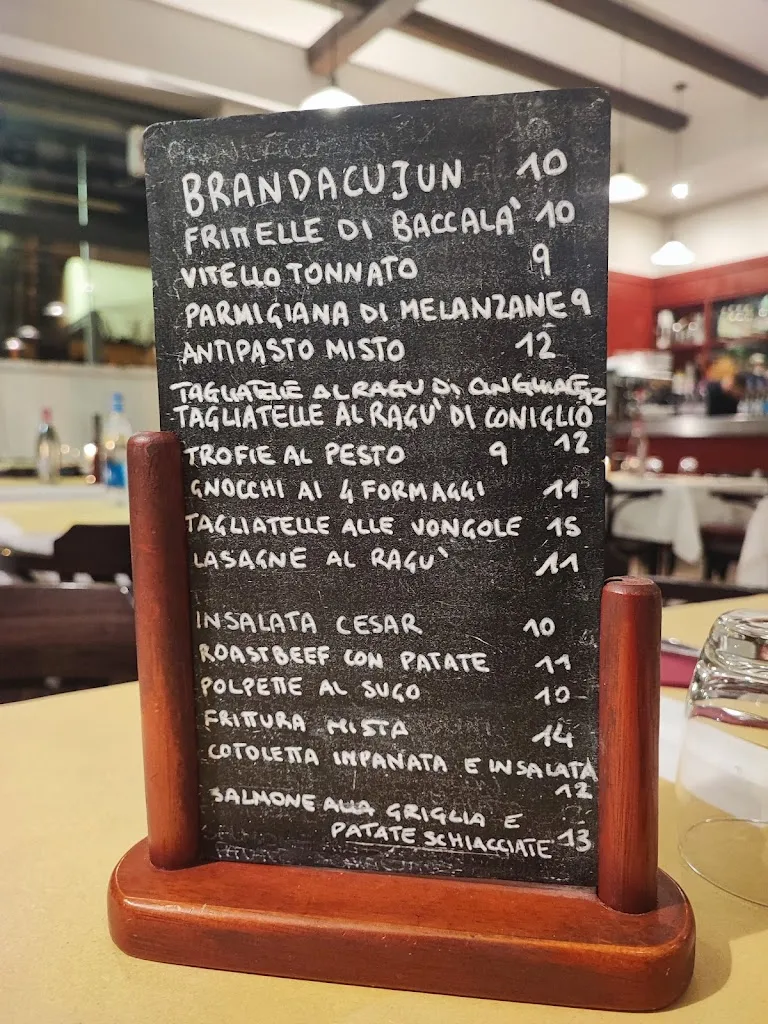 BRANDACUJUN 10
FRITTELLE DI BACCALA' 10
VITELLO TONNATO 9
PARMIGIANA DI MELANZANE 9
ANTIPASTO MISTO 12
TAGLIATELLE AL RAGU DI CINGHIALE 12
TAGLIATELLE AL RAGU' DI CONIGLIO
12
TROFIE AL PESTO 9
GNOCCHI AI 4 FORMAGGI 11
TAGLIATELLE ALLE VONGOLE 15
LASAGNE AL RAGU' 11
INSALATA CESAR 10
ROASTBEEF CON PATATE 11
POLPETTE AL SUGO 10
FRITTURA MISTA 14
COTOLETTA IMPANATA E INSALATA
12
SALMONE ALLA GRIGLIA E
PATATE SCHIACCIATE 13